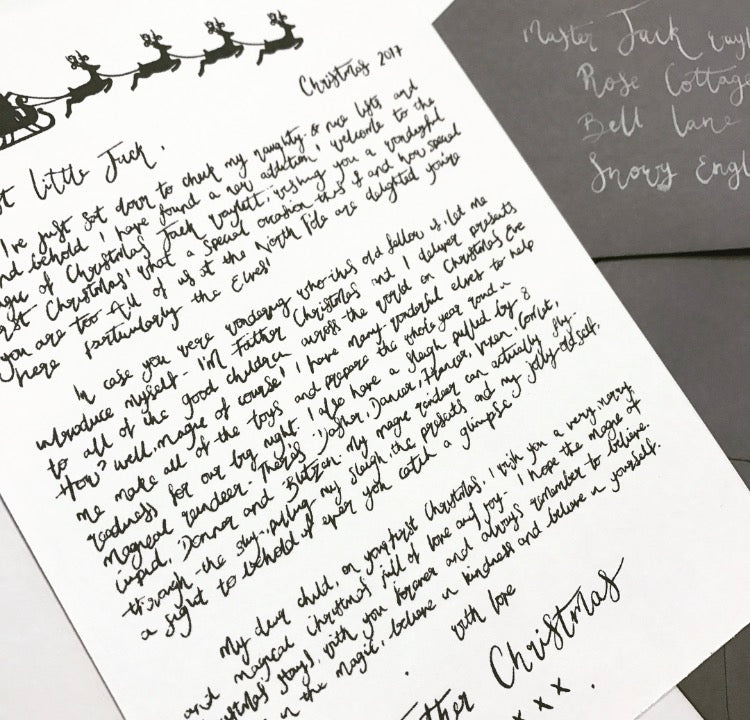 Christmas 2017
little Jack,
I've just sat down to check my naughty & nice lists and
behold I have found a new addition! Welcome to the
of Christmas Jack Vaylett, wishing you a wonderful
Christmas! What a special occasion this is and how special
you are too. All of us at the North Pole are delighted you're
here particularly the Elves!
In case you were wondering who this old fellow is, let me
introduce myself - I'm Father Christmas and I deliver presents
to all of the good children across the world on Christmas Eve
How? Well, magic of course! I have many wonderful elves to help
me make all of the toys and prepare the whole year round in
readiness for our big night. I also have a sleigh pulled by 8
magical reindeer - There's Dasher, Dancer, Prancer, Vixen, Comet,
Cupid, Donner and Blitzen. My magic reindeer can actually fly
through the sky, pulling my sleigh, the presents and my jolly old self,
a sight to behold if ever you catch a glimpse
My dear child, on your first Christmas, I wish you a very merry
and magical Christmas full of love and joy. I hope the magic of
stays with you forever and always remember to believe
in the magic, believe in kindness and believe in yourself.
with love
Christmas
x x x
Master Jack
Rose
Bell Lane
Snowy